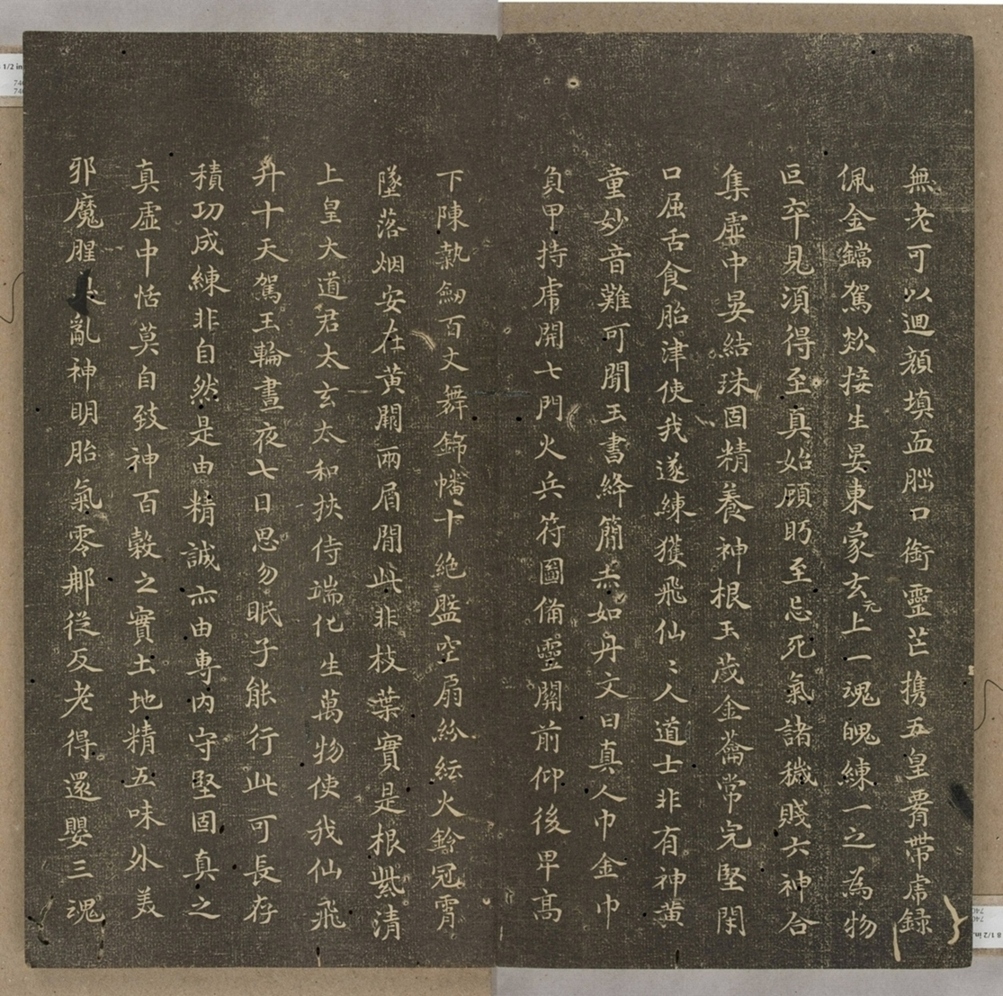 無老可以迴顔填血腦口銜靈芒携五皇霄帶虎錄
佩金鐺駕欻接生晏東蒙玄元上一魂魄練一之為物
叵卒見湏得至真始顧眄至忌死氣諸穢賤六神合
集虛中晏結珠固精養神根玉茂金蘥常完堅閑
口屈舌食胎津使我遂練獲飛仙〻人道士非有神黃
童妙音難可聞玉書絳簡赤如丹文曰真人巾金巾
負甲持虎開七門火兵符圖備靈關前仰後卑高
下陳執劒百丈舞錦幡十絕盤空扇紛紜火鈴冠霄
隊落烟安在黃闕兩眉間此非枝葉實是根紫清
上皇大道君太玄太和挾侍端化生萬物使我仙飛
升十天駕玉輪晝夜七日思勿眠子能行此可長存
積功成練非自然是由精誠亦由專內守堅固真之
真虛中恬莫自致神百穀之實土地精五味外美
邪魔腥亂神明胎氣零那從反老得還嬰三魂